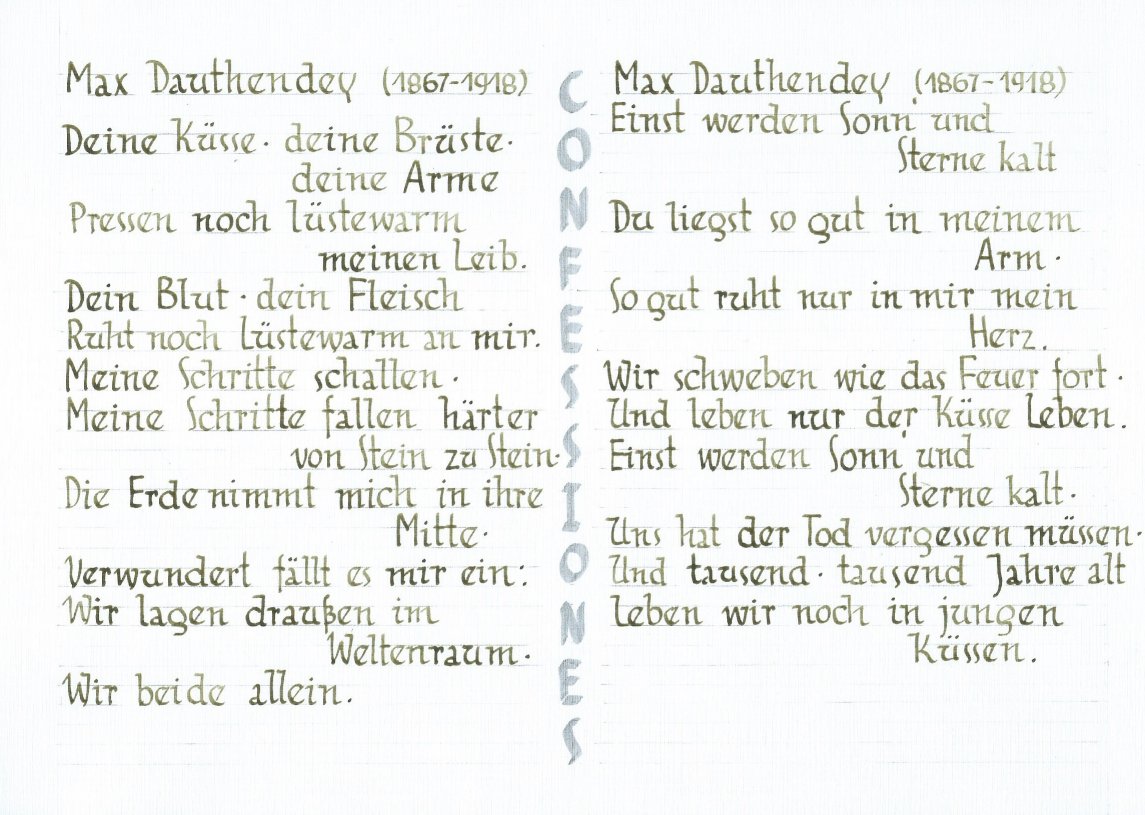 Max Dauthendey (1867-1918)
Deine Küsse · deine Brüste ·
deine Arme
Pressen noch lüstewarm
meinen Leib.
Dein Blut · dein Fleisch
Ruht noch lüstewarm an mir.
Meine Schritte schallen ·
Meine Schritte fallen härter
von Stein zu Stein ·
Die Erde nimmt mich in ihre
Mitte ·
Verwundert fällt es mir ein:
Wir lagen draußen im
Weltenraum ·
Wir beide allein.
CONFESSIONES
Max Dauthendey (1867-1918)
Einst werden Sonn' und
Sterne kalt
Du liegst so gut in meinem
Arm ·
So gut ruht nur in mir mein
Herz.
Wir schweben wie das Feuer fort ·
Und leben nur der Küsse Leben.
Einst werden Sonn' und
Sterne kalt ·
Uns hat der Tod vergessen müssen ·
Und tausend · tausend Jahre alt
Leben wir noch in jungen
Küssen.